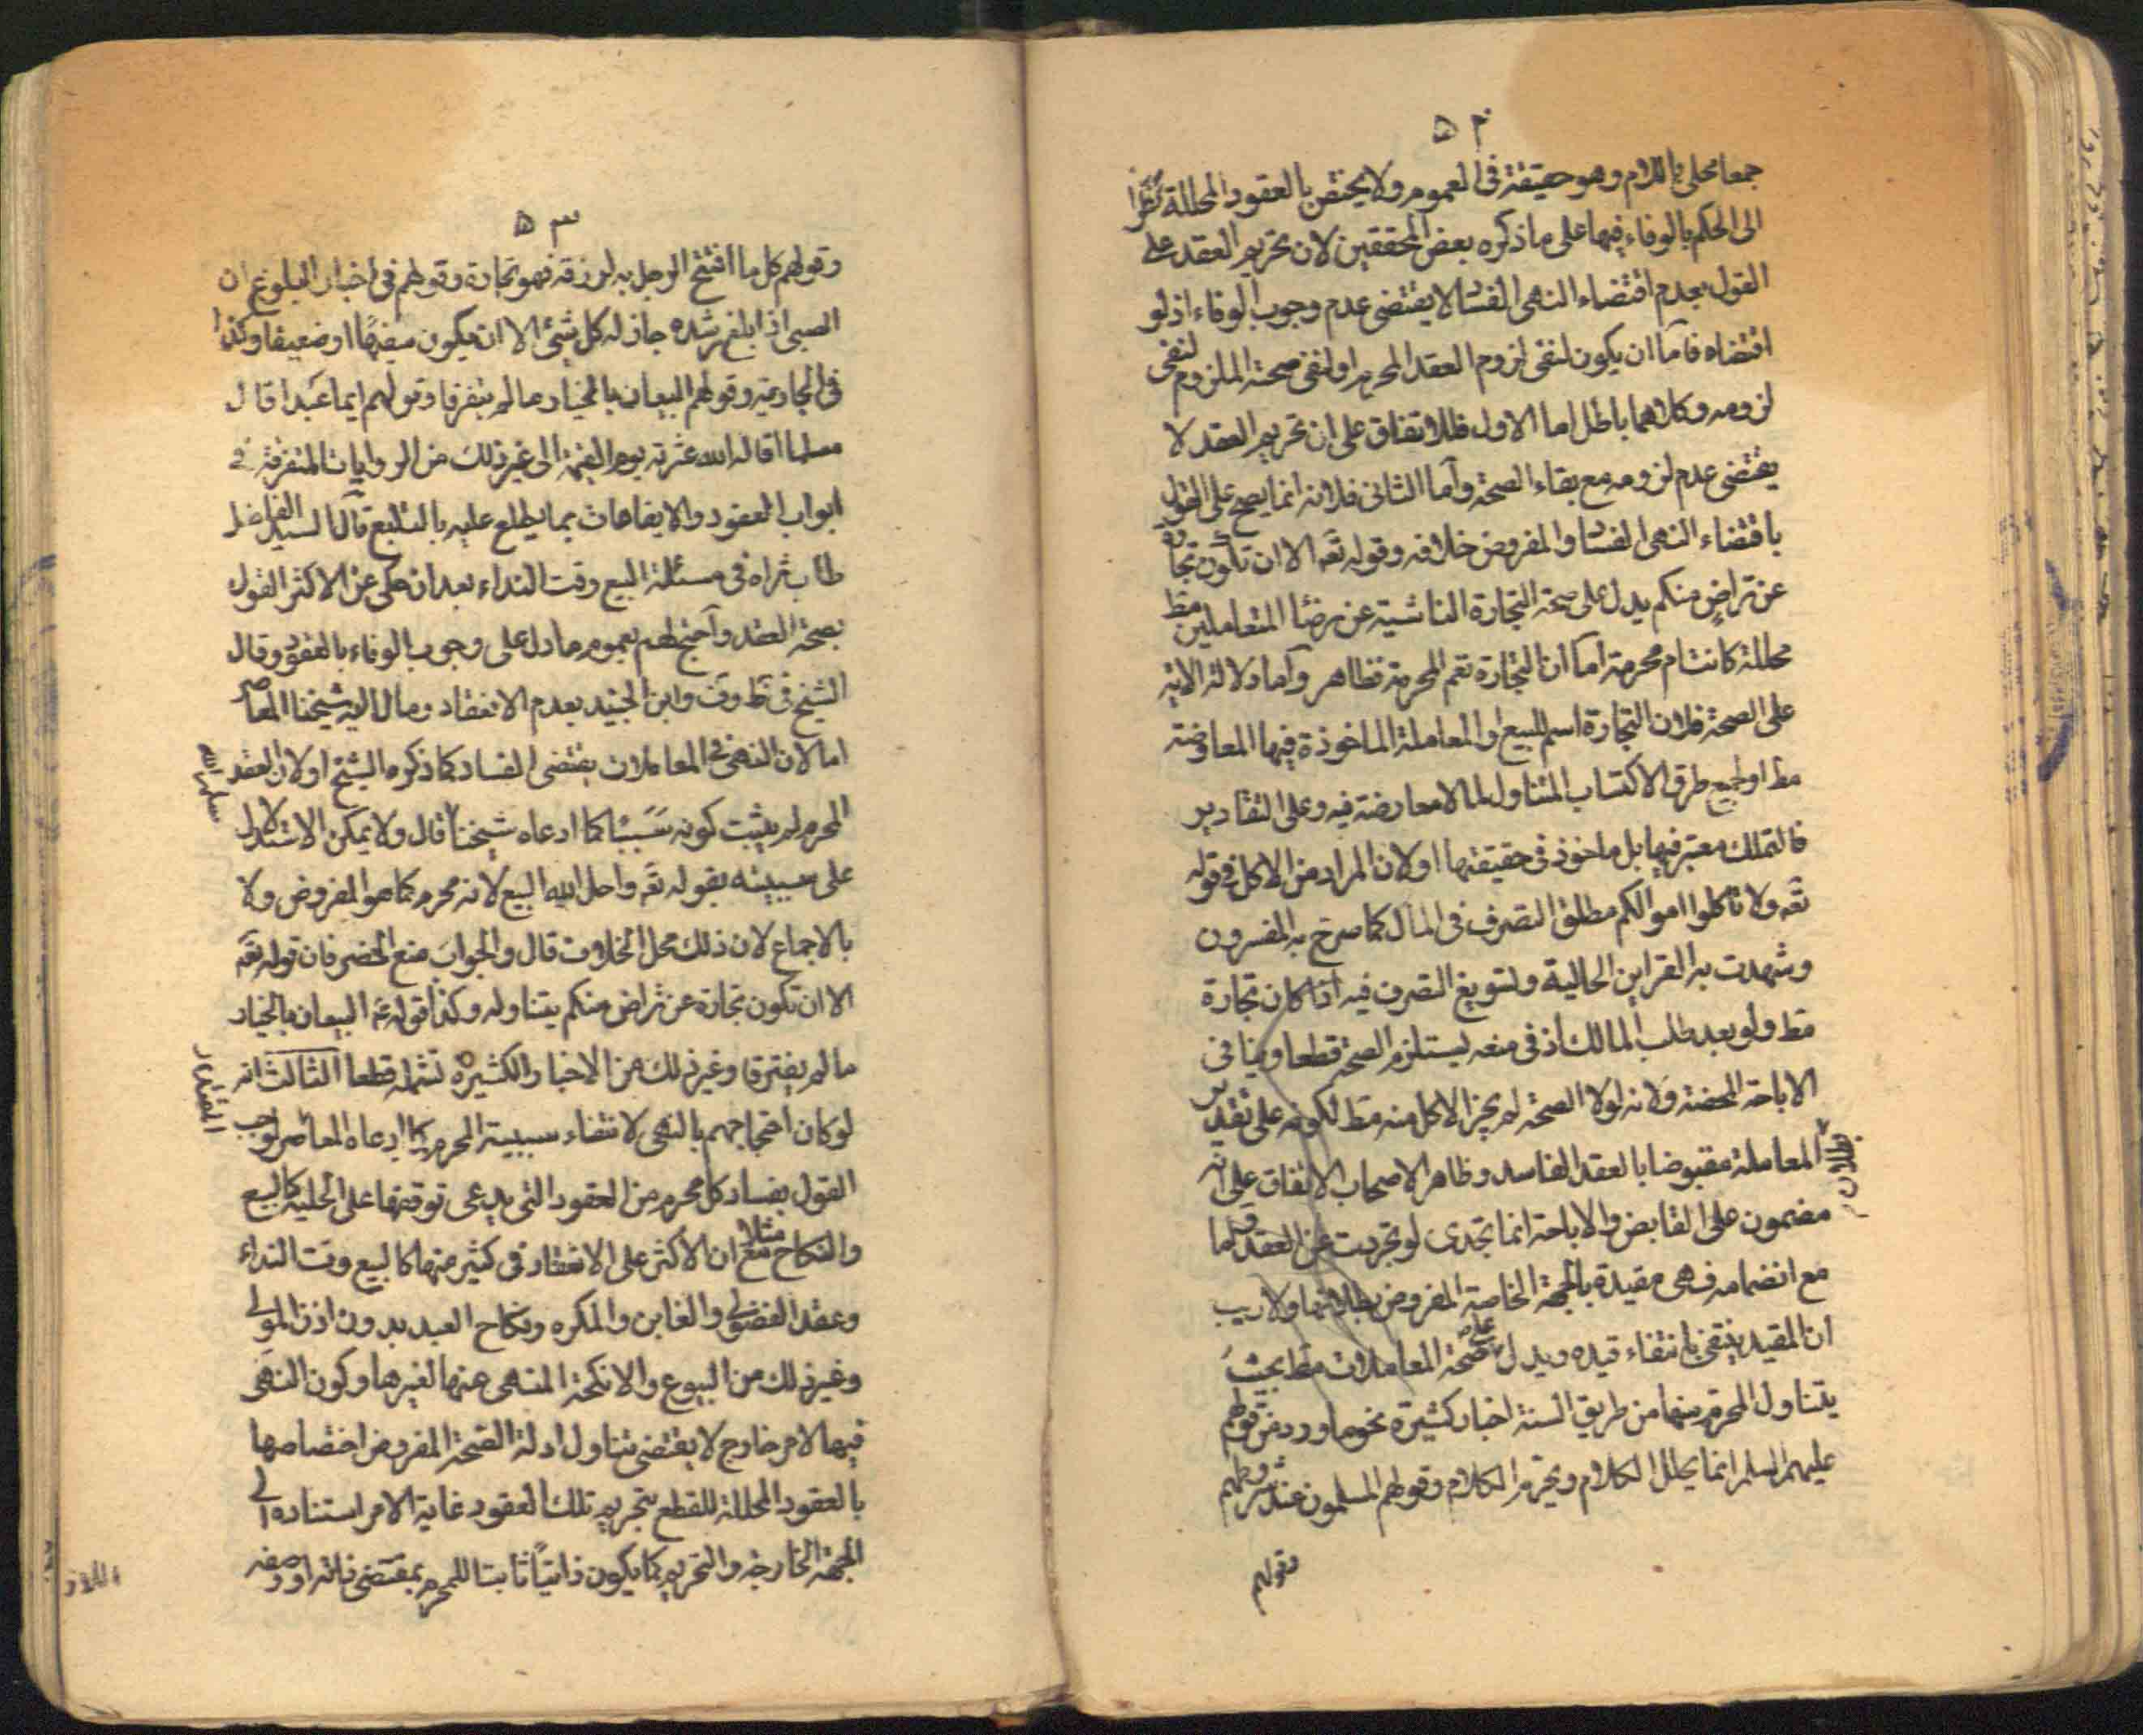 ۵۲
جمعا محلى باللام وهو حقيقة فى العموم ولا يختص بالعقود المحللة نظرا
الى الحكم بالوفاء فيها على ما ذكره بعض المحققين لان تحريم العقد على
القول بعدم اقتضاء النهى الفسا لا يقتضى عدم وجوب الوفاء اذ لو
اقتضاه فاما ان يكون لنفى لزوم العقد المحرم او لنفى صحة الملزوم لنفى
لزومه وكلاهما باطل اما الاول فللاتفاق على ان تحريم العقد لا
يقتضى عدم لزومه مع بقاء الصحة واما الثانى فلانه انما يصح على القول
باقتضاء النهى الفسا والمفروض خلافه وقوله تعه الا ان تكون تجارة
عن تراض منكم يدل على صحة التجارة الناشية عن رضا المتعاملين مط
محللة كانت ام محرمة اما ان التجارة تعم المحرمة فظاهر واما دلالة الاية
على الصحة فلان التجارة اسم للبيع او المعاملة الماخوذة فيها المعاوضة
مط او لجميع طرق الاكتساب المتناول لما لا معارضة فيه وعلى التقادير
فالتملك معتبر فيها بل ماخوذ فى حقيقتها او لان المراد من الاكل فى قوله
تعه ولا تاكلوا اموالكم مطلق التصرف فى المال كما صرح به المفسرون
وشهدت به القراين الحالية ولتسويغ التصرف فيه اذا كان تجارة
مط ولو بعد طلب المالك اذ فى منعه ليستلزم الصحة قطعا وينافى
الاباحة المحضة ولانه لولا الصحة لم يجز الاكل منه مط لكونه على تقدير
بطلان
المعاملة مقبوضا بالعقد الفاسد وظاهر الاصحاب الاتفاق على انه
مضمون على القابض والاباحة انما تجدى لو تجردت عن العقد واما
مع انضمامه فهى مقيدة بالجهة الخاصة المفروض بطلانها ولا ريب
ان المقيد ينتفى بانتفاء قيده ويدل على صحة المعاملات مط بحيث
يتناول المحرم منها من طريق السنة اخبار كثيرة نحو ما ورد من قولهم
عليهم السلم انما يحلل الكلام ويحرم الكلام وقولهم المسلمون عند شروطهم
وقولهم
۵۳
وقولهم كل ما افتتح الرجل به رزقه فهو تجارة وقولهم فى اخبار البلوغ ان
الصبى اذا بلغ رشده جاز له كل شئ الا ان يكون سفيها او ضعيفا وكذا
فى الجارية وقولهم البيعان بالخيار ما لم يتفرقا وقولهم ايما عبد اقال
مسلما اقاله الله عثرته يوم القيمة الى غير ذلك من الروايات المتفرقة فى
ابواب العقود والايقاعات مما يطلع عليه بالتتبع قال السيد الفاضل
طاب ثراه فى مسئلة البيع وقت النداء بعد ان حكى عن الاكثر القول
بصحة العقد واحتج لهم بعموم ما دل على وجوب الوفاء بالعقود وقال
الشيخ فى ط وف وابن الجنيد بعدم الانعقاد ومال اليه شيخنا المعاصر
سلمه الله
اما لان النهى فى المعاملات يقتضى الفساد كما ذكره الشيخ او لان العقد
المحرم لم يثبت كونه سببا كما ادعاه شيخنا قال ولا يمكن الاستدلال
على سببيته بقوله تعه واحل الله البيع لانه محرم كما هو المفروض ولا
بالاجماع لان ذلك محل الخلاف قال والجواب منع الحصر فان قوله تعه
الا ان تكون تجارة عن تراض منكم يتناوله وكذا قوله ع البيعان بالخيار
ما لم يفترقا وغير ذلك من الاخبار الكثيرة تشمله قطعا الثالث انه
لو كان احتجاجهم بالنهى لانتفاء سببية المحرم كما ادعاه المعاصر لوجب
القول بفساد كل محرم من العقود التى يدعى توقفها على الحلية كالبيع
والنكاح مثلا مع ان الاكثر على الانعقاد فى كثير منها كالبيع وقت النداء
وعقد الفضولى والغابن والمكره ونكاح العبد بدون اذن المولى
وغير ذلك من البيوع والانكحة المنهى عنها لغيرها وكون النهى
فيها لامر خارج لا يقتضى تناول ادلة الصحة المفروض اختصاصها
بالعقود المحللة للقطع بتحريم تلك العقود غاية الامر استناده الى
الجهة الخارجة والتحريم كما يكون ذاتيا ثابتا للمحرم بمقتضى ذاته او وصفه